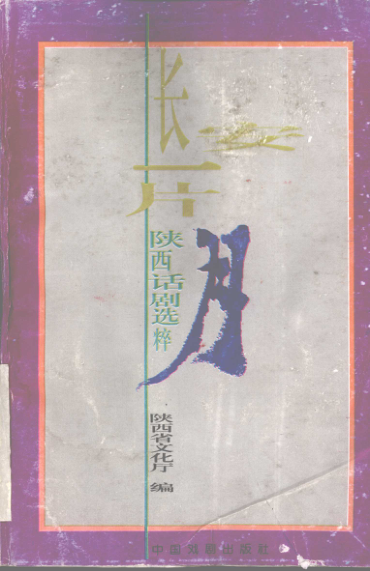 长安
一片
月
陕西话剧选粹
陕西省文化厅 编
中国戏剧出版社